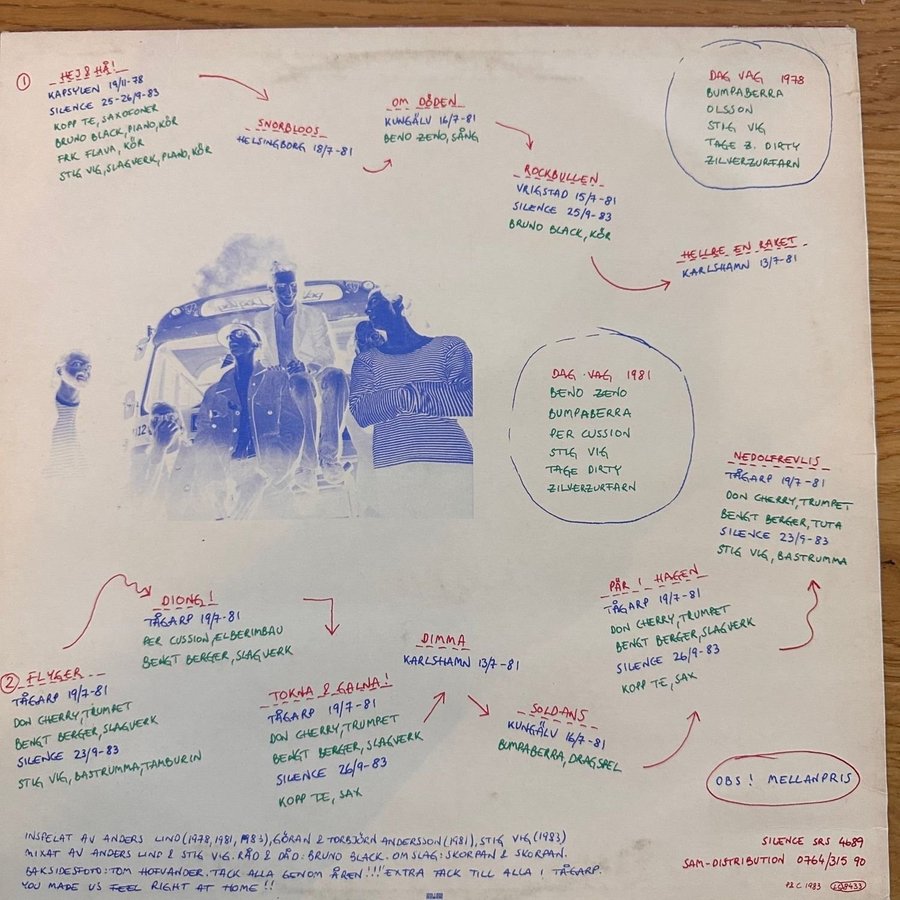 1
HEJ & HÅ!
KAPSYLEN 19/11-78
SILENCE 25-26/9-83
KOPP TE, SAXOFONER
BRUNO BLACK, PIANO, KÖR
FRK FLAVA, KÖR
STIG VIG, SLAGVERK, PIANO, KÖR
SNORBLOOS
HELSINGBORG 18/7-81
OM DÖDEN
KUNGÄLV 16/7-81
BENO ZENO, SÅNG
ROCKBULLEN
VRIGSTAD 15/7-81
SILENCE 25/9-83
BRUNO BLACK, KÖR
HELLRE EN RAKET
KARLSHAMN 13/7-81
DAG VAG 1978
BUMPABERRA
OLSSON
STIG VIG
TAGE Z. DIRTY
ZILVERZURFARN
DAG VAG 1981
BENO ZENO
BUMPABERRA
PER CUSSION
STIG VIG
TAGE DIRTY
ZILVERZURFARN
2
FLYGER
TÅGARP 19/7-81
DON CHERRY, TRUMPET
BENGT BERGER, SLAGVERK
SILENCE 23/9-83
STIG VIG, BASTRUMMA, TAMBURIN
DIONG!
TÅGARP 19/7-81
PER CUSSION, ELBERIMBAU
BENGT BERGER, SLAGVERK
TOKNA & GALNA!
TÅGARP 19/7-81
DON CHERRY, TRUMPET
BENGT BERGER, SLAGVERK
SILENCE 26/9-83
KOPP TE, SAX
DIMMA
KARLSHAMN 13/7-81
SOLDANS
KUNGÄLV 16/7-81
BUMPABERRA, DRAGSPEL
PÄR I HAGEN
TÅGARP 19/7-81
DON CHERRY, TRUMPET
BENGT BERGER, SLAGVERK
SILENCE 26/9-83
KOPP TE, SAX
NEDOLFREVLIS
TÅGARP 19/7-81
DON CHERRY, TRUMPET
BENGT BERGER, TUTA
SILENCE 23/9-83
STIG VIG, BASTRUMMA
OBS! MELLANPRIS
INSPELAT AV ANDERS LIND (1978, 1981, 1983), GÖRAN & TORBJÖRN ANDERSSON (1981), STIG VIG (1983)
MIXAT AV ANDERS LIND & STIG VIG. RÅD & DÅD: BRUNO BLACK. OMSLAG: SKORPAN & SKORPAN.
BAKSIDESFOTO: TOM HOFVANDER. TACK ALLA GENOM ÅREN!!! EXTRA TACK TILL ALLA I TÅGARP.
YOU MADE US FEEL RIGHT AT HOME!!
SILENCE SRS 4689
SAM-DISTRIBUTION 0764/315 90
P & C 1983